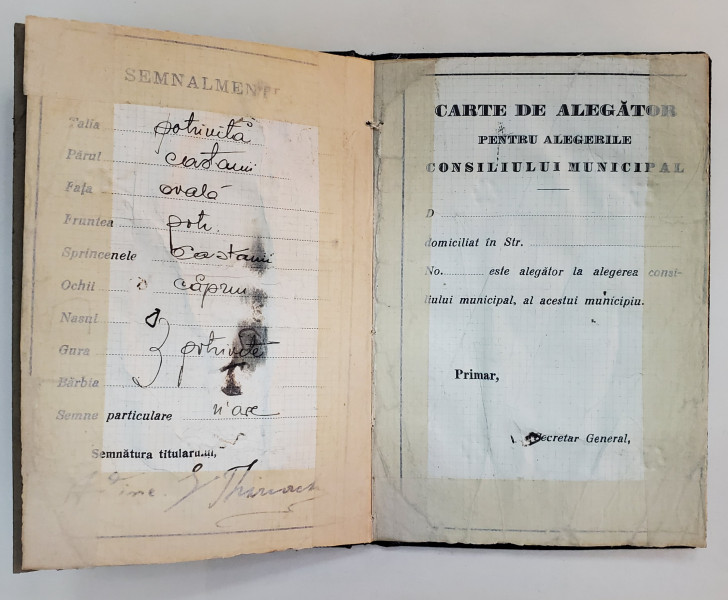 SEMNALMENTE
Talia potrivită
Părul castanii
Fața ovală
Fruntea potr.
Sprincenele castanii
Ochii căprui
Nasul
Gura potrivite
Bărbia
Semne particulare n'are
Semnătura titularului,
CARTE DE ALEGĂTOR
PENTRU ALEGERILE
CONSILIULUI MUNICIPAL
D
domiciliat în Str.
No. este alegător la alegerea consi-
liului municipal, al acestui municipiu.
Primar,
Secretar General,